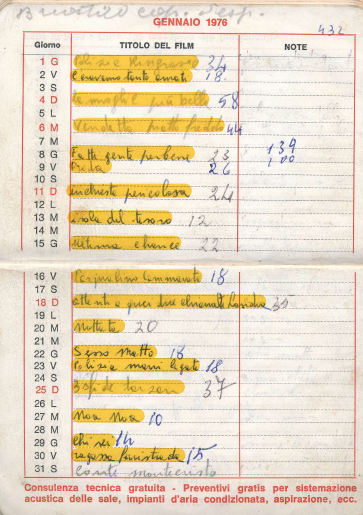 GENNAIO 1976
432
Giorno TITOLO DEL FILM NOTE
1 G Polizia 34
2 V C'eravamo tanto amati 18.
3 S
4 D la moglie più bella 58
5 L
6 M Vendetta 44
7 M
8 G Fatti gente perbene 23 139
9 V Preda 26 100
10 S
11 D inchiesta pericolosa 24
12 L
13 M isola del tesoro 12
14 M
15 G Settima chance 22
16 V Pasqualino Cammarata 18
17 S
18 D attenti a quei due chiamate Londra 35
19 L
20 M Nottata 20
21 M
22 G Sesso Matto 16
23 V Polizia mani legate 18
24 S
25 D 3 di tarzan 37
26 L
27 M Noa Noa 10
28 M
29 G Chi sei 14
30 V ragazza fuoristrada 15
31 S Conte montecristo
Consulenza tecnica gratuita - Preventivi gratis per sistemazione
acustica delle sale, impianti d'aria condizionata, aspirazione, ecc.